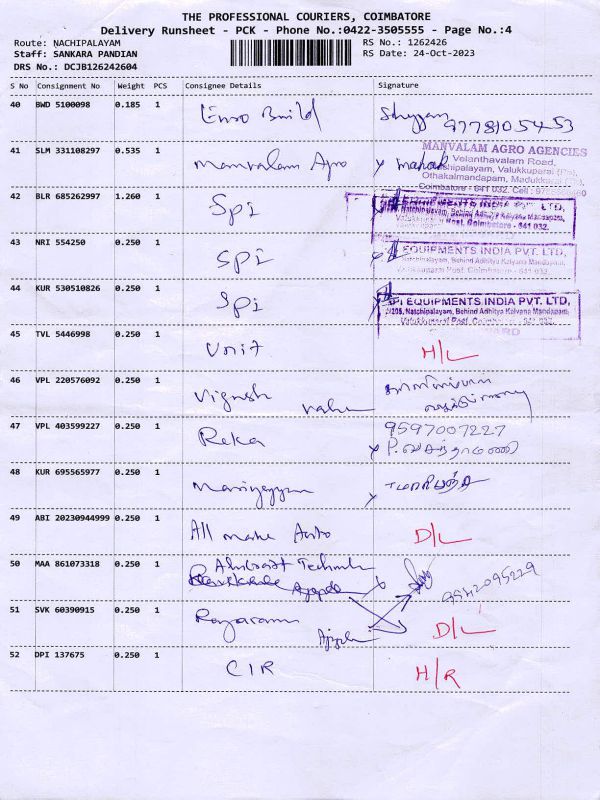 THE PROFESSIONAL COURIERS, COIMBATORE
Delivery Runsheet - PCK - Phone No.:0422-3505555 - Page No.:4
Route: NACHIPALAYAM RS No.: 1262426
Staff: SANKARA PANDIAN RS Date: 24-Oct-2023
DRS No.: DCJB126242604
S No Consignment No Weight PCS Consignee Details Signature
40 BWD 5100098 0.185 1 Enro Build
41 SLM 331108297 0.535 1 Manvalam Agro
MANVALAM AGRO AGENCIES
Velanthavalam Road,
Othakalmandapam, Madukkarai
Coimbatore - 641 032. Cell :
42 BLR 685262997 1.260 1 Spi
EQUIPMENTS INDIA PVT. LTD,
Natchipalayam, Behind
Post, Coimbatore - 641 032.
43 NRI 554250 0.250 1 Spi
EQUIPMENTS INDIA PVT. LTD,
Natchipalayam, Behind Adhitya Kalyana Mandapam,
Post, Coimbatore - 641 032.
44 KUR 530510826 0.250 1 Spi
EQUIPMENTS INDIA PVT. LTD,
Natchipalayam, Behind Adhitya Kalyana Mandapam,
Valukkuparai Post, Coimbatore - 641 032.
45 TVL 5446998 0.250 1 Unit H/L
46 VPL 220576092 0.250 1 Vignesh
47 VPL 403599227 0.250 1 Reka 9597007227
P. வசந்தாமணி
48 KUR 695565977 0.250 1
49 ABI 20230944999 0.250 1 All make Auto D/L
50 MAA 861073318 0.250 1 9542095229
51 SVK 60390915 0.250 1 Rajaram D/L
52 DPI 137675 0.250 1 CIR H/R